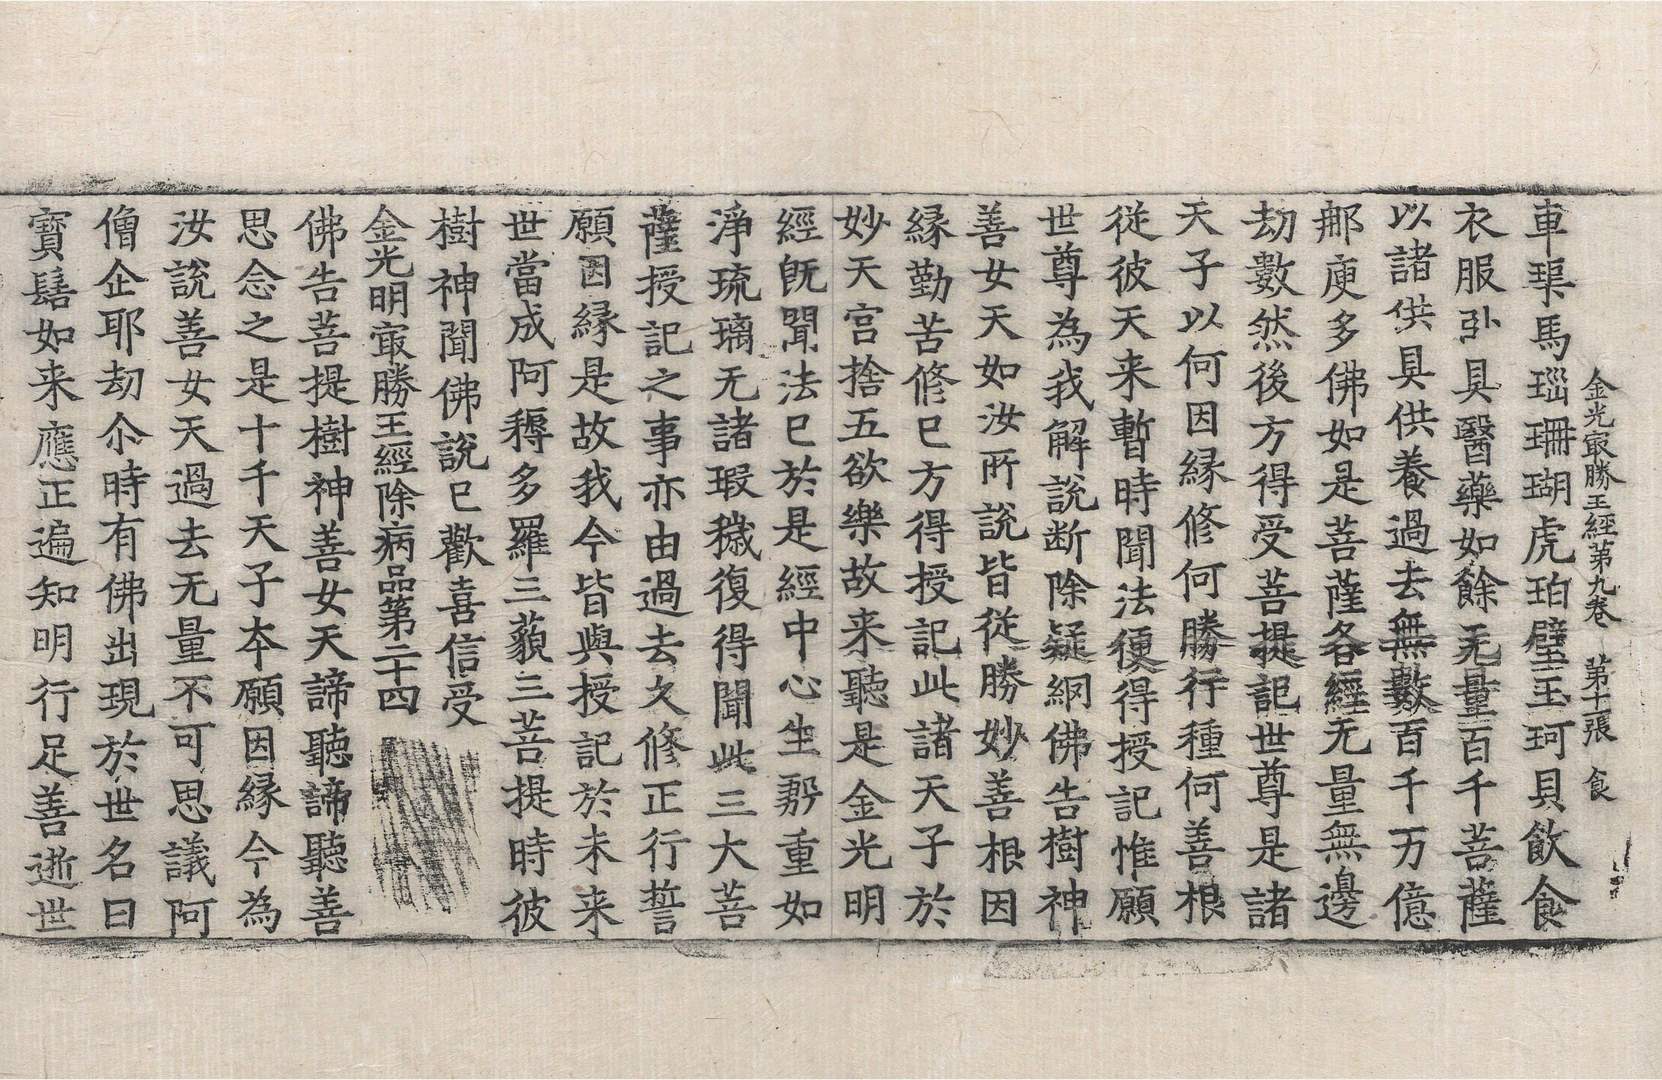 金光㝡勝王經第九卷 第十一張 食
車璖馬瑙珊瑚虎珀璧玉珂貝飲食
衣服卧具醫藥如餘无量百千菩薩
以諸供具供養過去無數百千万億
那庾多佛如是菩薩各經无量無邊
劫數然後方得受菩提記世尊是諸
天子以何因縁修何勝行種何善根
從彼天来暫時聞法便得授記惟願
世尊為我解說断除疑網佛告樹神
善女天如汝所說皆從勝妙善根因
縁勤苦修已方得授記此諸天子於
妙天宫捨五欲樂故来聽是金光明
經既聞法已於是經中心生𣫍重如
淨琉璃无諸瑕穢復得聞此三大菩
薩授記之事亦由過去久修正行誓
願因縁是故我今皆與授記於未来
世當成阿耨多羅三藐三菩提時彼
樹神聞佛說已歡喜信受
金光明㝡勝王經除病品第二十四
佛告菩提樹神善女天諦聽諦聽善
思念之是十千天子夲願因縁今為
汝說善女天過去无量不可思議阿
僧企耶劫尒時有佛出現於世名曰
寳髻如来應正遍知明行足善逝世